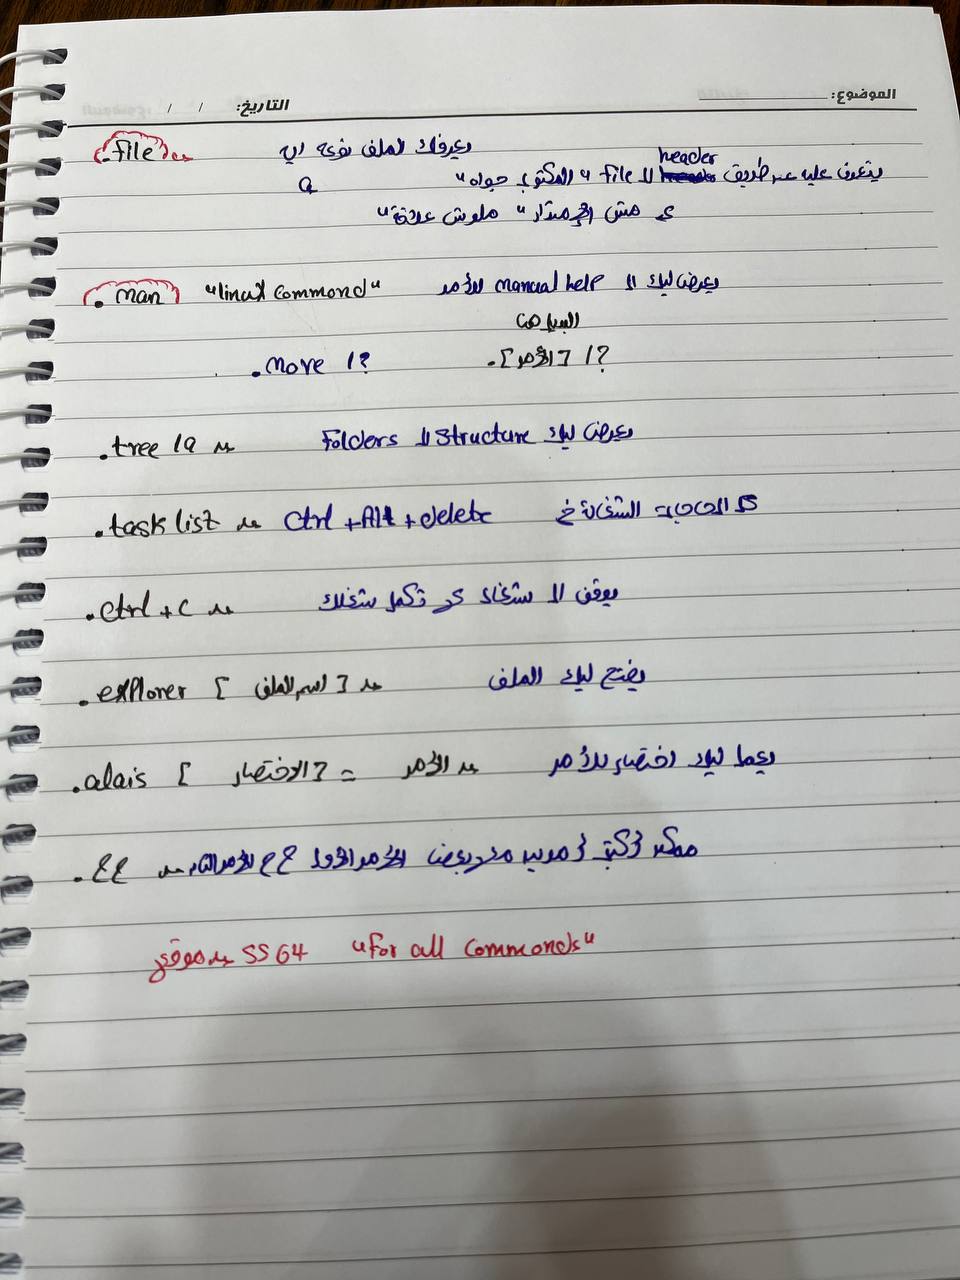 الموضوع: التاريخ: / /
.file يعرفك الملف نوعه ايه
يتعرف عليه عن طريق header لل file "المكتوب جواه"
مش الإمتداد "ملوش علاقة"
.man "linux commond" يعرض ليك ال manual help للأمر
.move /? .[الأمر] /?
.tree /a يعرض ليك structure ال Folders
.task list Ctrl + Alt + delete كل الحاجات الشغالة
.ctrl + c يوقف ال شغال تكمل شغلك
.explorer [اسم الملف] يفتح ليك الملف
.alais [الاختصار] = الأمر يعمل ليك اختصار للأمر
.&& ممكن اكتب امرين مع بعض الأمر الأول && الأمر التاني
موقع SS64 "For all Commonds"